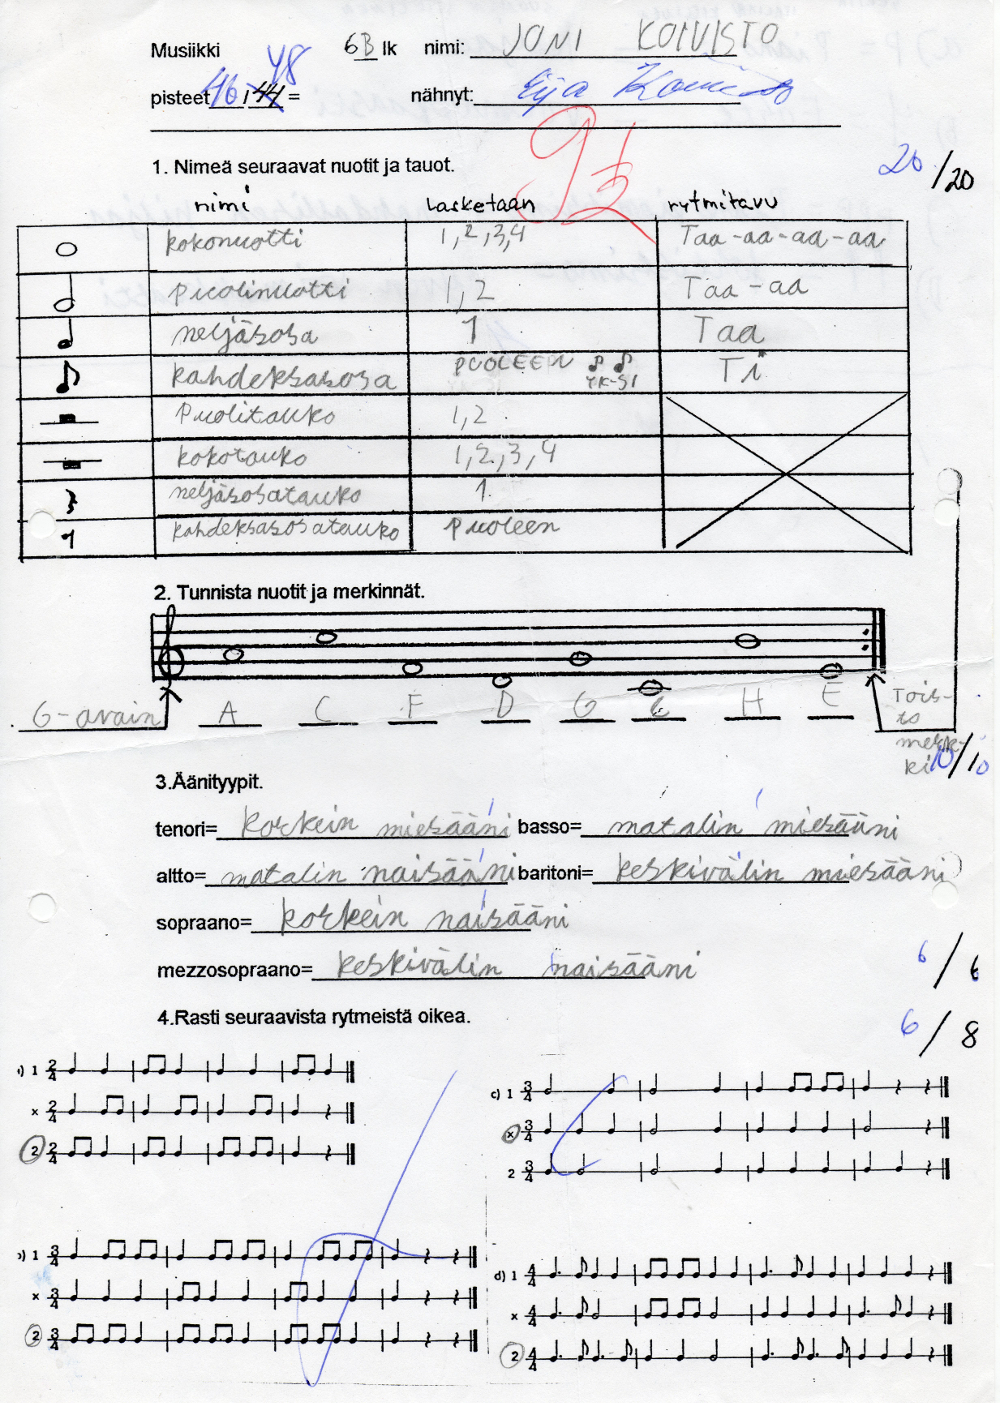 Musiikki 6B lk nimi: JONI KOIVISTO
48
pisteet 46 / 44 = nähnyt: Eija Koivisto
9½
1. Nimeä seuraavat nuotit ja tauot. 20/20
nimi lasketaan rytmitavu
kokonuotti 1,2,3,4 Taa-aa-aa-aa
Puolinuotti 1,2 Taa-aa
neljäsosa 1 Taa
kahdeksasosa PUOLEEN YK-SI Ti
Puolitauko 1,2
kokotauko 1,2,3,4
neljäsosatauko 1.
kahdeksasosatauko Puoleen
2. Tunnista nuotit ja merkinnät.
G-avain A C F D G C H E Tois-
to
merk-
ki 10/10
3.Äänityypit.
tenori= korkein miesääni basso= matalin miesääni
altto= matalin naisääni baritoni= keskivälin miesääni
sopraano= korkein naisääni
mezzosopraano= keskivälin naisääni 6/6
4.Rasti seuraavista rytmeistä oikea. 6/8
) 1 2/4
x 2/4
2 2/4
c) 1 3/4
x 3/4
2 3/4
) 1 3/4
x 3/4
2 3/4
d) 1 4/4
x 4/4
2 4/4